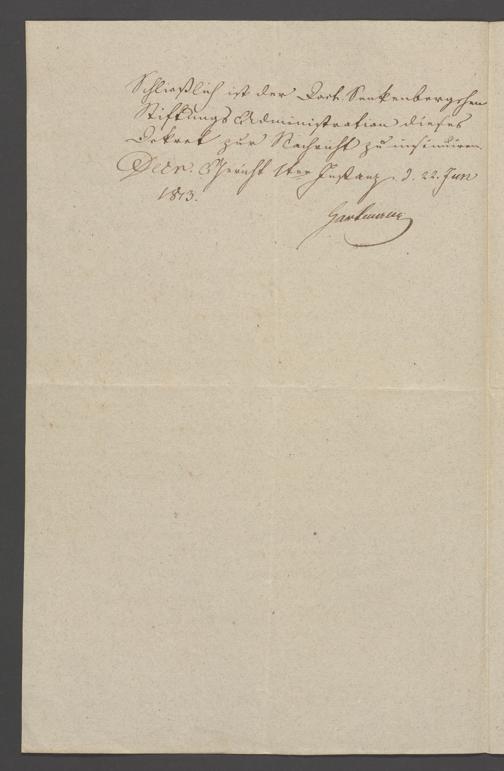 Schließlich ist der Doct. Senkenbergschen
Stiftungs Administration dieses
Dekret zur Nachricht zu insinuiren.
Decr. Gericht 1ter Instanz. d. 22. Jun
1813.
Hartmann